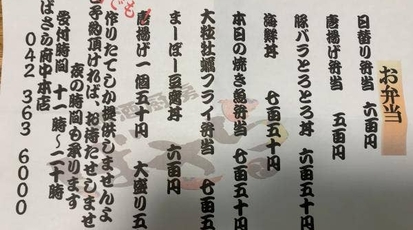 お弁当
日替り弁当 六百円
唐揚げ弁当 五百円
豚バラとろとろ丼 六百五十円
海鮮丼 七百五十円
本日の焼き魚弁当 七百五
大粒牡蠣フライ弁当 七百五
まーぼー豆腐丼 六百円
唐揚げ一個五十円 大盛り五
でも
作りたてしか提供しませんよ
ご予約頂ければ、お待たせしませ
夜の時間も承ります
受付時間 十一時〜二十時
ばさら府中本店
042 363 6000